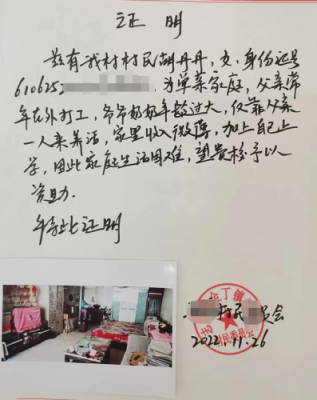 证明
兹有我村村民胡丹丹，女，身份证号
610625 为单亲家庭，父亲常
年在外打工，爷爷奶奶年龄过大，仅靠父亲
一人来养活，家里收入微薄，加上自己上
学，因此家庭生活困难，望贵校予以
资助。
特此证明
村民 员会
2022.11.26